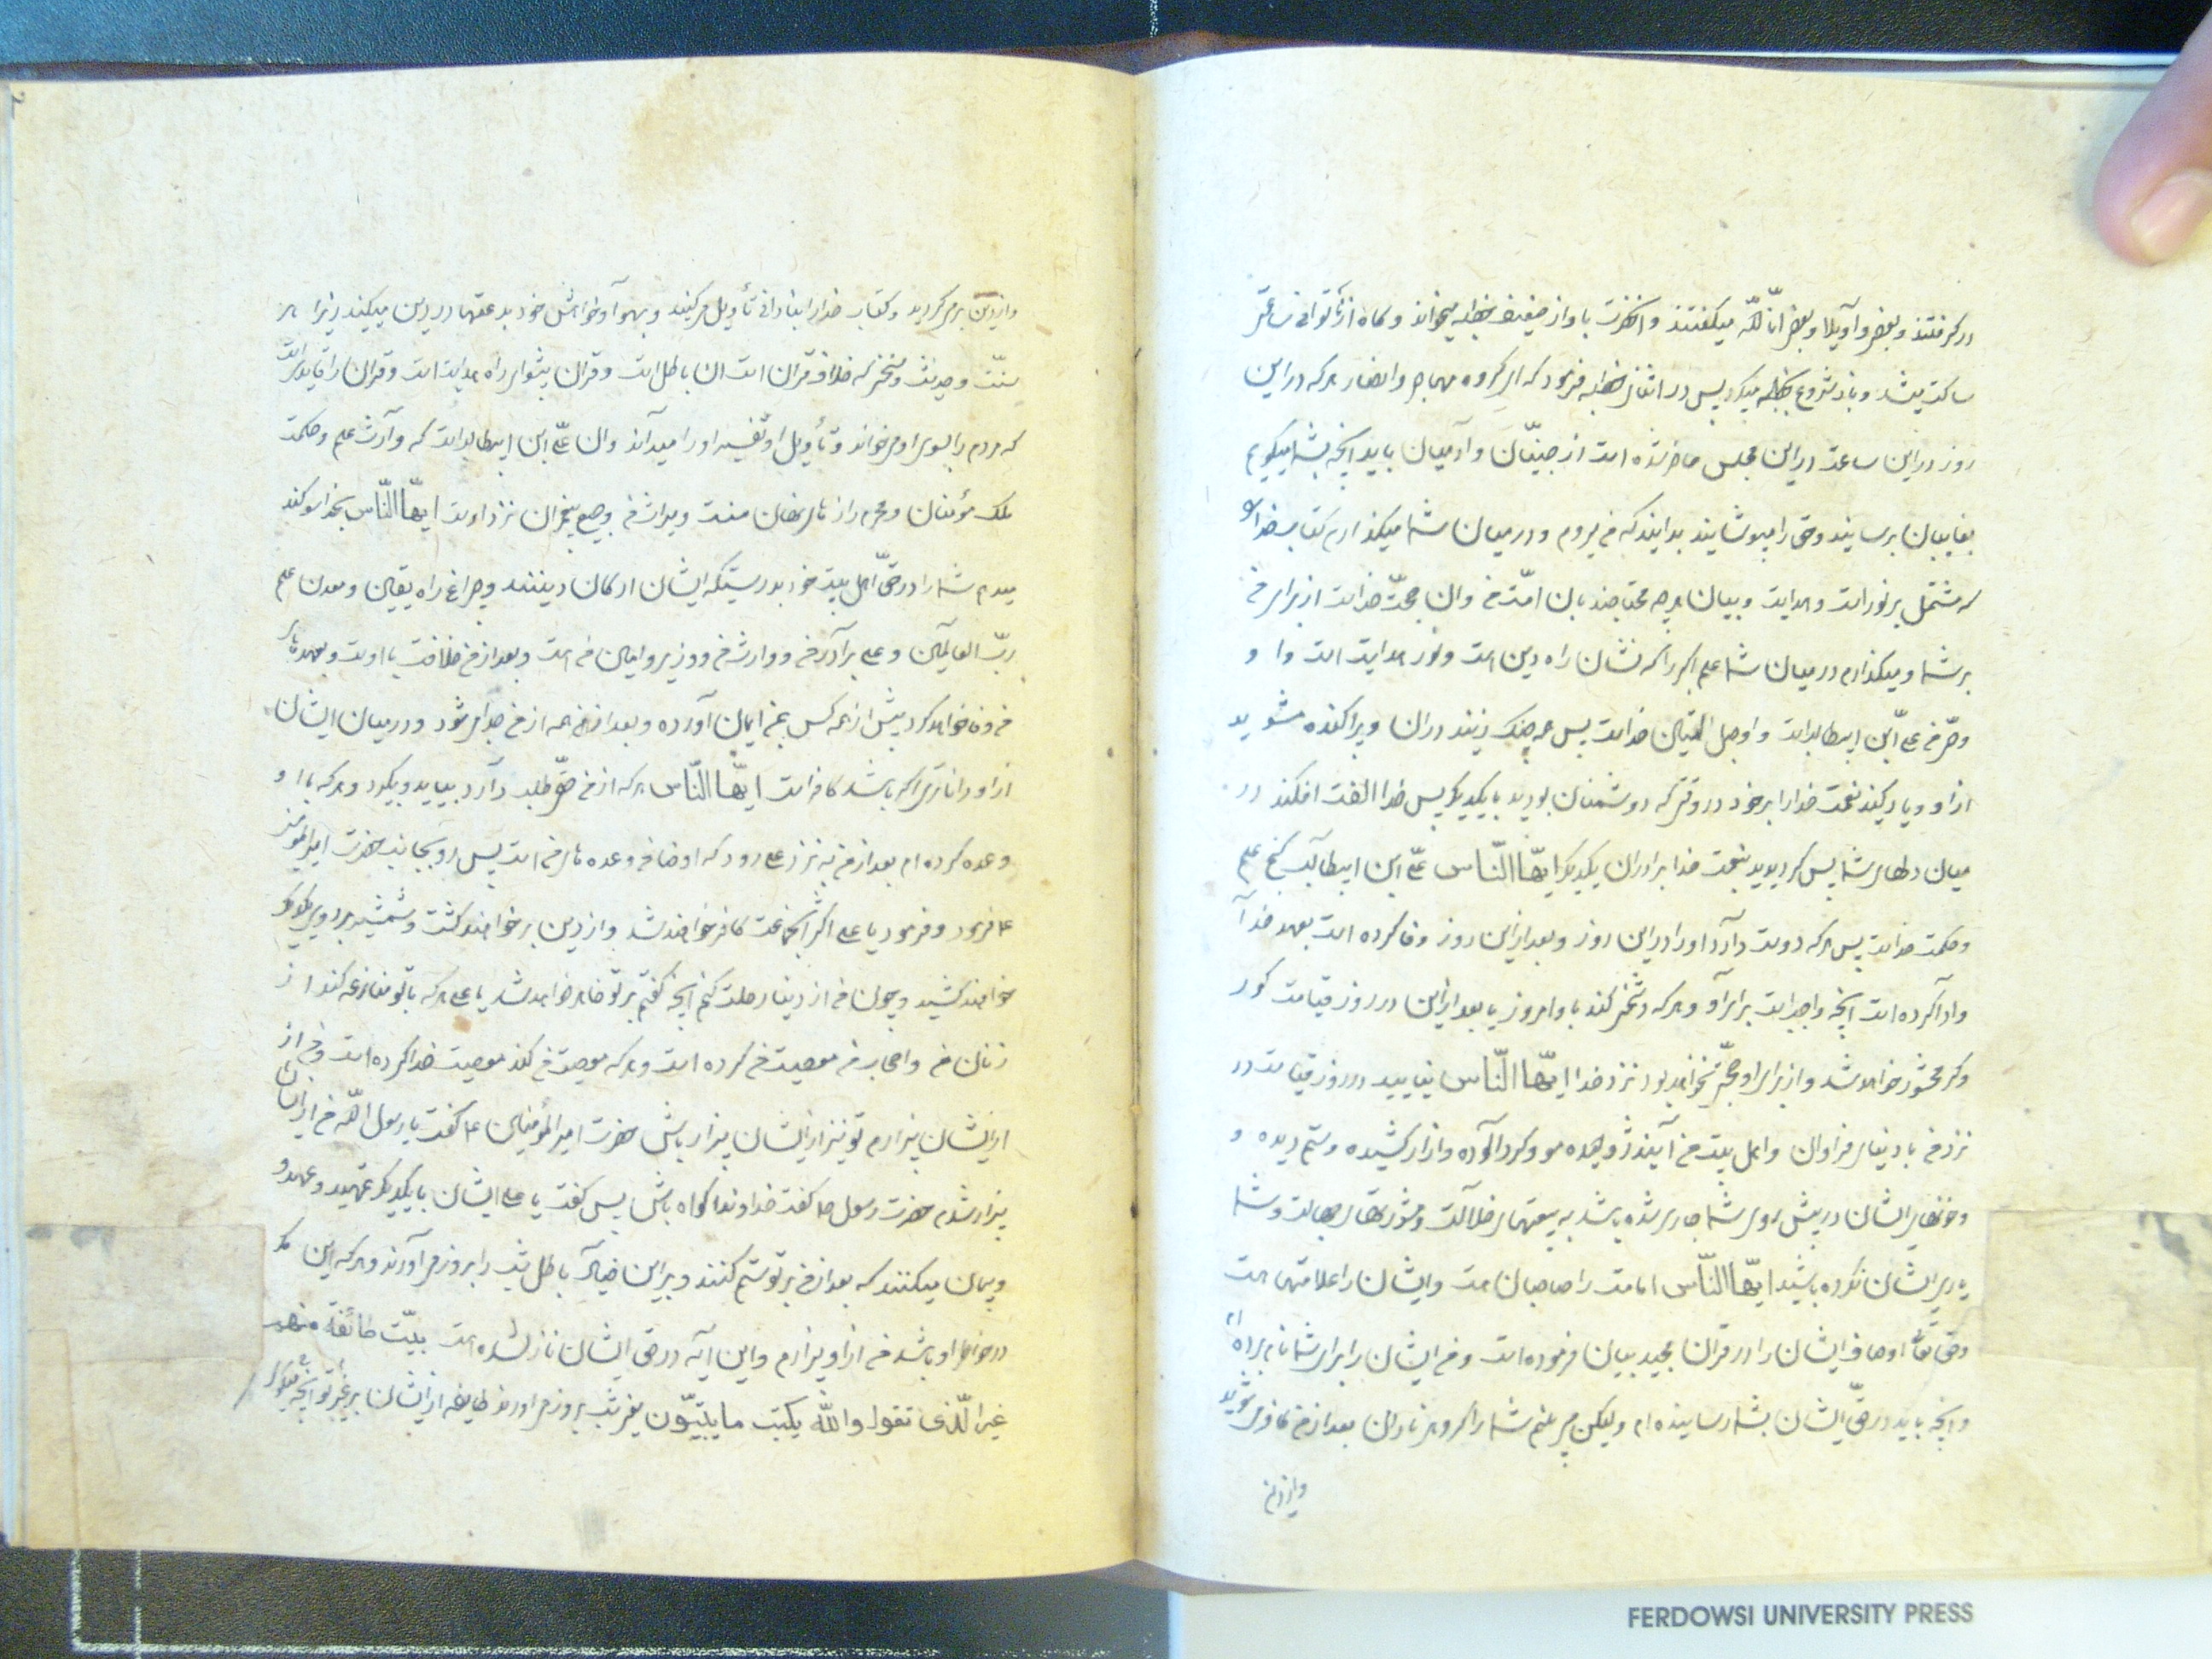 در گرفتند و بعضی واویلا و بعضی انا لله میگفتند و آنحضرت باواز ضعیف خطبه میخواند و گاه از ناتوانی ساعتی
ساکت میشد و باز شروع بخطبه میکرد پس در اثنای خطبه فرمود که ای گروه مهاجر و انصار هر که در این
روز در این ساعت در این مجلس حاضر شده است از جنیّان و آدمیان باید آنچه بشما میگویم
بغایبان برسانید و حق را مپوشانید بدانید که من میروم و در میان شما میگذارم کتاب خدا
که مشتمل بر نور است و هدایت و بیان هر چه محتاجند بان امّت من و ان حجّت خداست از برای من
بر شما و میگذارم در میان شما علم اکبر را که نشان راه دین است و نور هدایت است و او
وصّی من علیّ ابن ابیطالب است و او حبل المتین خداست پس همه چنگ زنید در ان و پراکنده مشوید
از او و یاد کنید نعمت خدا را بر خود در وقتی که دشمنان بودید با یکدیگر پس خدا الفت افکند در
میان دلهای شما پس گردیدید بنعمت خدا برادران یکدیگر ایّها النّاس علیّ ابن ابیطالب گنج علم
و حکمت خداست پس هر که دوست دارد او را در این روز و بعد از این روز وفا کرده است بعهد خدا
و ادا کرده است آنچه واجب است برای او و هر که دشمنی کند با او امروز یا بعد از این در روز قیامت کور
و کر محشور خواهد شد و از برای او حجّتی نخواهد بود نزد خدا ایّها النّاس نیایید در روز قیامت در
نزد من با دنیای فراوان و اهل بیت من آیند ژولیده مو و گرد آلوده و ازار کشیده و ستم دیده و
و خونهای ایشان در پیش روی شما جاری شده باشد به بیعتهای ضلالت و مشورتهای جهالت و شما
یاری ایشان نکرده باشید ایّها النّاس امامت را صاحبان هست و ایشان را علامتها هست
و حق تعالی اوصاف ایشان را در قران مجید بیان فرموده است و من ایشان را برای شما نام برده ام
و آنچه باید در حقّ ایشان بشما رسانیده ام و لیکن می بینم شما را گروهی نادان بعد از من کافر میشوید
و از دین
و از دین برمیگردید و کتاب خدا را بنادانی تأویل میکنید و بهوا و خواهش خود بدعتها در دین میکنید زیرا هر
سنّت و حدیث و سخنی که خلاف قران است ان باطل است و قران پیشوای راه هدایت است و قران را قایدی است
که مردم را بسوی او میخواند و تأویل او تفسیر او را میداند و ان علیّ ابن ابیطالب است که وارث علم و حکمت
ایّها النّاس بخدا سوگند
میدهم شما را در حقّ اهل بیت خود بدرستیکه ایشان ارکان دینند و چراغ راه یقین و معدن علم
ربّ العالمین و علی برادر من و وارث من و وزیر و امین من است و بعد از من خلافت با اوست و بعهدهای
من وفا خواهد کرد پیش از همه کس بمن ایمان آورده و بعد از همه از من جدا میشود و در میان ایشان
ایّها النّاس هر که از من حقّی طلب دارد بیاید و بگیرد و هر که با او
وعده کرده ام بعد از من به نزد علی رود که او ضامن وعده های من است پس رو بجانب حضرت امیر المؤمنین
ع فرمود و فرمود یا علی اکثر آنجماعت کافر خواهند شد و از دین بر خواهند گشت و شمشیر بر روی یکدیگر
خواهند کشید و چون من از دنیا رحلت کنم آنچه گفتم بر تو ظاهر خواهد شد یا علی هر که با تو منازعه کند از
زنان من و اصحاب من معصیت من کرده است و هر که معصیت من کند معصیت خدا کرده است و من از
ایشان بیزارم تو نیز از ایشان بیزار باش حضرت امیر المؤمنین ع گفت یا رسول الله من از ایشان
بیزار شدم حضرت رسول ص گفت خداوندا گواه باش پس گفت یا علی ایشان با یکدیگر تمهید و عهد
و پیمان میکنند که بعد از من بر تو ستم کنند و بر این خیال باطل شب را بروز می آورند و هر که این مکر
در خاطر او باشد من از او بیزارم و این آیه در حق ایشان نازل شده است بیّت طائفة منهم
غیر الّذی تقول و الله یکتب ما یبیّتون یعنی شب بروز می آورند طایفه از ایشان بر غیر آنچه تو میگوئی
FERDOWSI UNIVERSITY PRESS